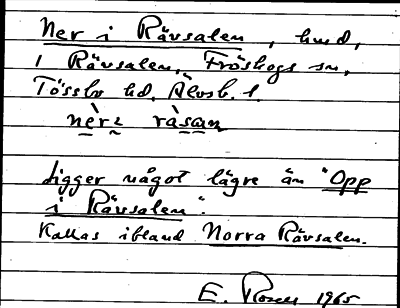 Ner i Rävsalen, hmd,
i Rävsalen, Fröskogs sn,
Tössbo hd, Älvsb. l.
nèrɪ ràsaɱ
Ligger något lägre än "Opp
i Rävsalen".
Kallas ibland Norra Rävsalen.
E. Rosell 1965